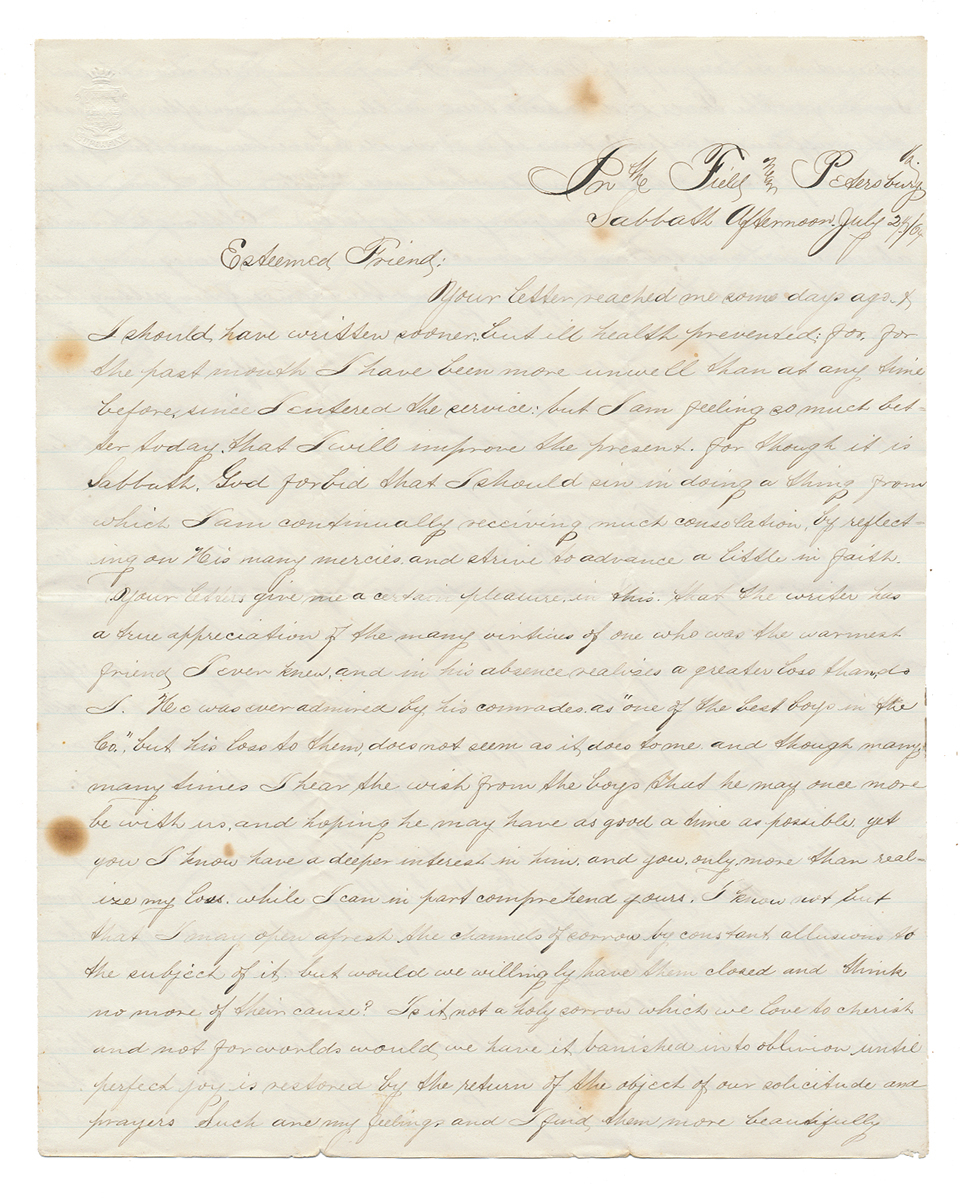 In the Field near Petersburg Va.
Sabbath Afternoon. July 2 /64
Esteemed Friend;
Your letter reached me some days ago, &
I should have written sooner, but ill health prevented; for, for
the past month I have been more unwell than at any time
before, since I entered the service: but I am feeling so much bet-
ter today, that I will improve the present. For though it is
Sabbath, God forbid that I should sin in doing a thing from
which I am continually receiving much consolation, by reflect-
ing on His many mercies, and strive to advance a little in faith.
Your letters give me a certain pleasure, in this, that the writer has
a true appreciation of the many virtues of one who was the warmest
friend I ever knew, and in his absence realizes a greater loss than do
I. He was ever admired by his comrades, as "one of the best boys in the
Co.", but his loss to them, does not seem as it does to me, and though many,
many times I hear the wish from the boys that he may once more
be with us, and hoping he may have as good a time as possible, yet
you I know have a deeper interest in him, and you, only, more than real-
ize my loss, while I can in part comprehend yours. I know not but
that I may open afresh the channels of sorrow by constant allusions to
the subject of it, but would we willingly have them closed and think
no more of their cause? Is it not a holy sorrow which we love to cherish
and not for worlds would we have it banished into oblivion until
perfect joy is restored by the return of the object of our solicitude and
prayers Such are my feelings and I find them more beautifully